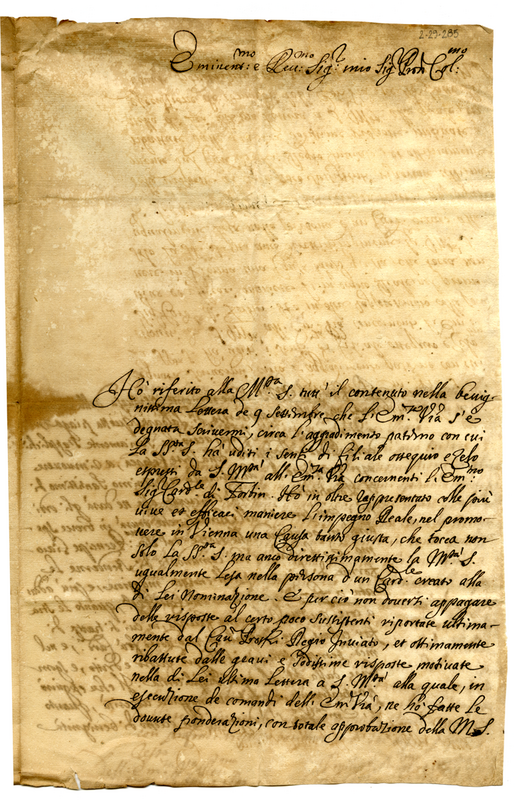 2-29-285
Eminent:mo e Reu:mo Sig:r mio Sig:r Pron Col:mo
Hò riferito alla M.tà S. tutt' il contenuto nella benig-
nissima Lettera de 9 Settembre, che l'Em.za V'ra s'è
degnata scriuermi, circa l'aggradimento paterno con cui
La S.tà S. hà uditi i sensi di filiale ossequio e zelo
espressi da S. M.tà all' Em.za V'ra concernenti l'Em:mo
Sig.r Card.le di Fortin. Hò in oltre rappresentato colle più
uiue et efficaci maniere l'impegno Reale, nel promo-
uere in Vienna una Causa tanto giusta, che tocca non
solo La S.tà S. ma anco direttissimamente la M.tà S.
ugualmente Lesa nella persona d'un Card.le creato alla
di Lei Nominazione. E per ciò non douersi appagare
delle risposte al certo poco sussistenti riportate ultima-
mente dal Cau. Regio Inuiato, et ottimamente
ribattute dalle graui e sodissime risposte motiuate
nella di Lei ultima Lettera a S. M.tà alla quale, in
esecuzione de comandi dell' Em.za V'ra, ne hò fatte le
douute ponderazioni, con totale approbazione della M. S.